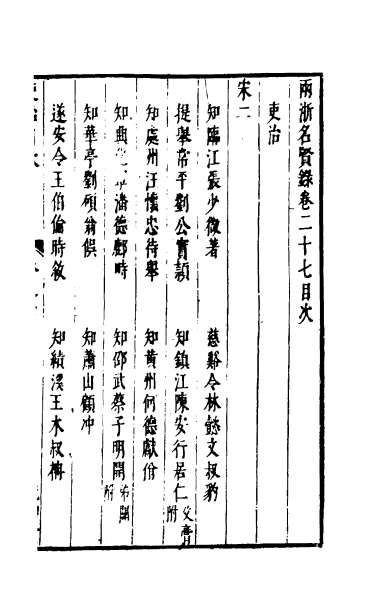 兩浙名賢錄卷二十七目次
吏治
宋二
知臨江張少微著
慈谿令林懿文叔豹
提舉常平劉公實頴
知鎮江陳安行居仁父膏附
知處州汪懷忠待舉
知黃州何德獻佾
知興化軍潘德鄜時
知邵武蔡子明開弟闢附
知華亭劉碩翁俁
知蕭山顧冲
遂安令王伯倫時敘
知績溪王木叔柟